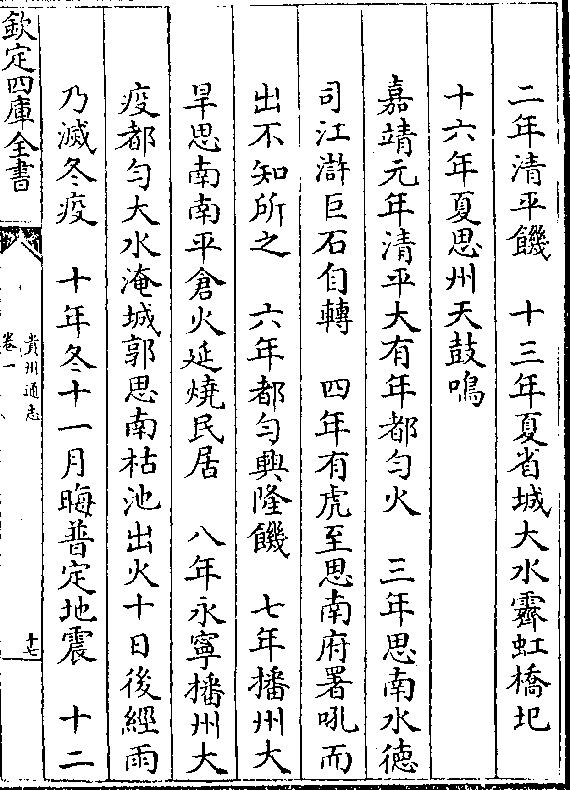 二年清平饑　十三年夏省城大水霽虹橋圮
十六年夏思州天鼓鳴
嘉靖元年清平大有年都勻火　三年思南水德
司江滸巨石自轉　四年有虎至思南府署吼而
出不知所之　六年都勻興隆饑　七年播州大
旱思南南平倉火延燒民居　八年永寧播州大
疫都勻大水淹城郭思南枯池出火十日後經雨
乃滅冬疫　十年冬十一月晦普定地震　十二
欽定四庫全書
貴州通志
卷一
十七